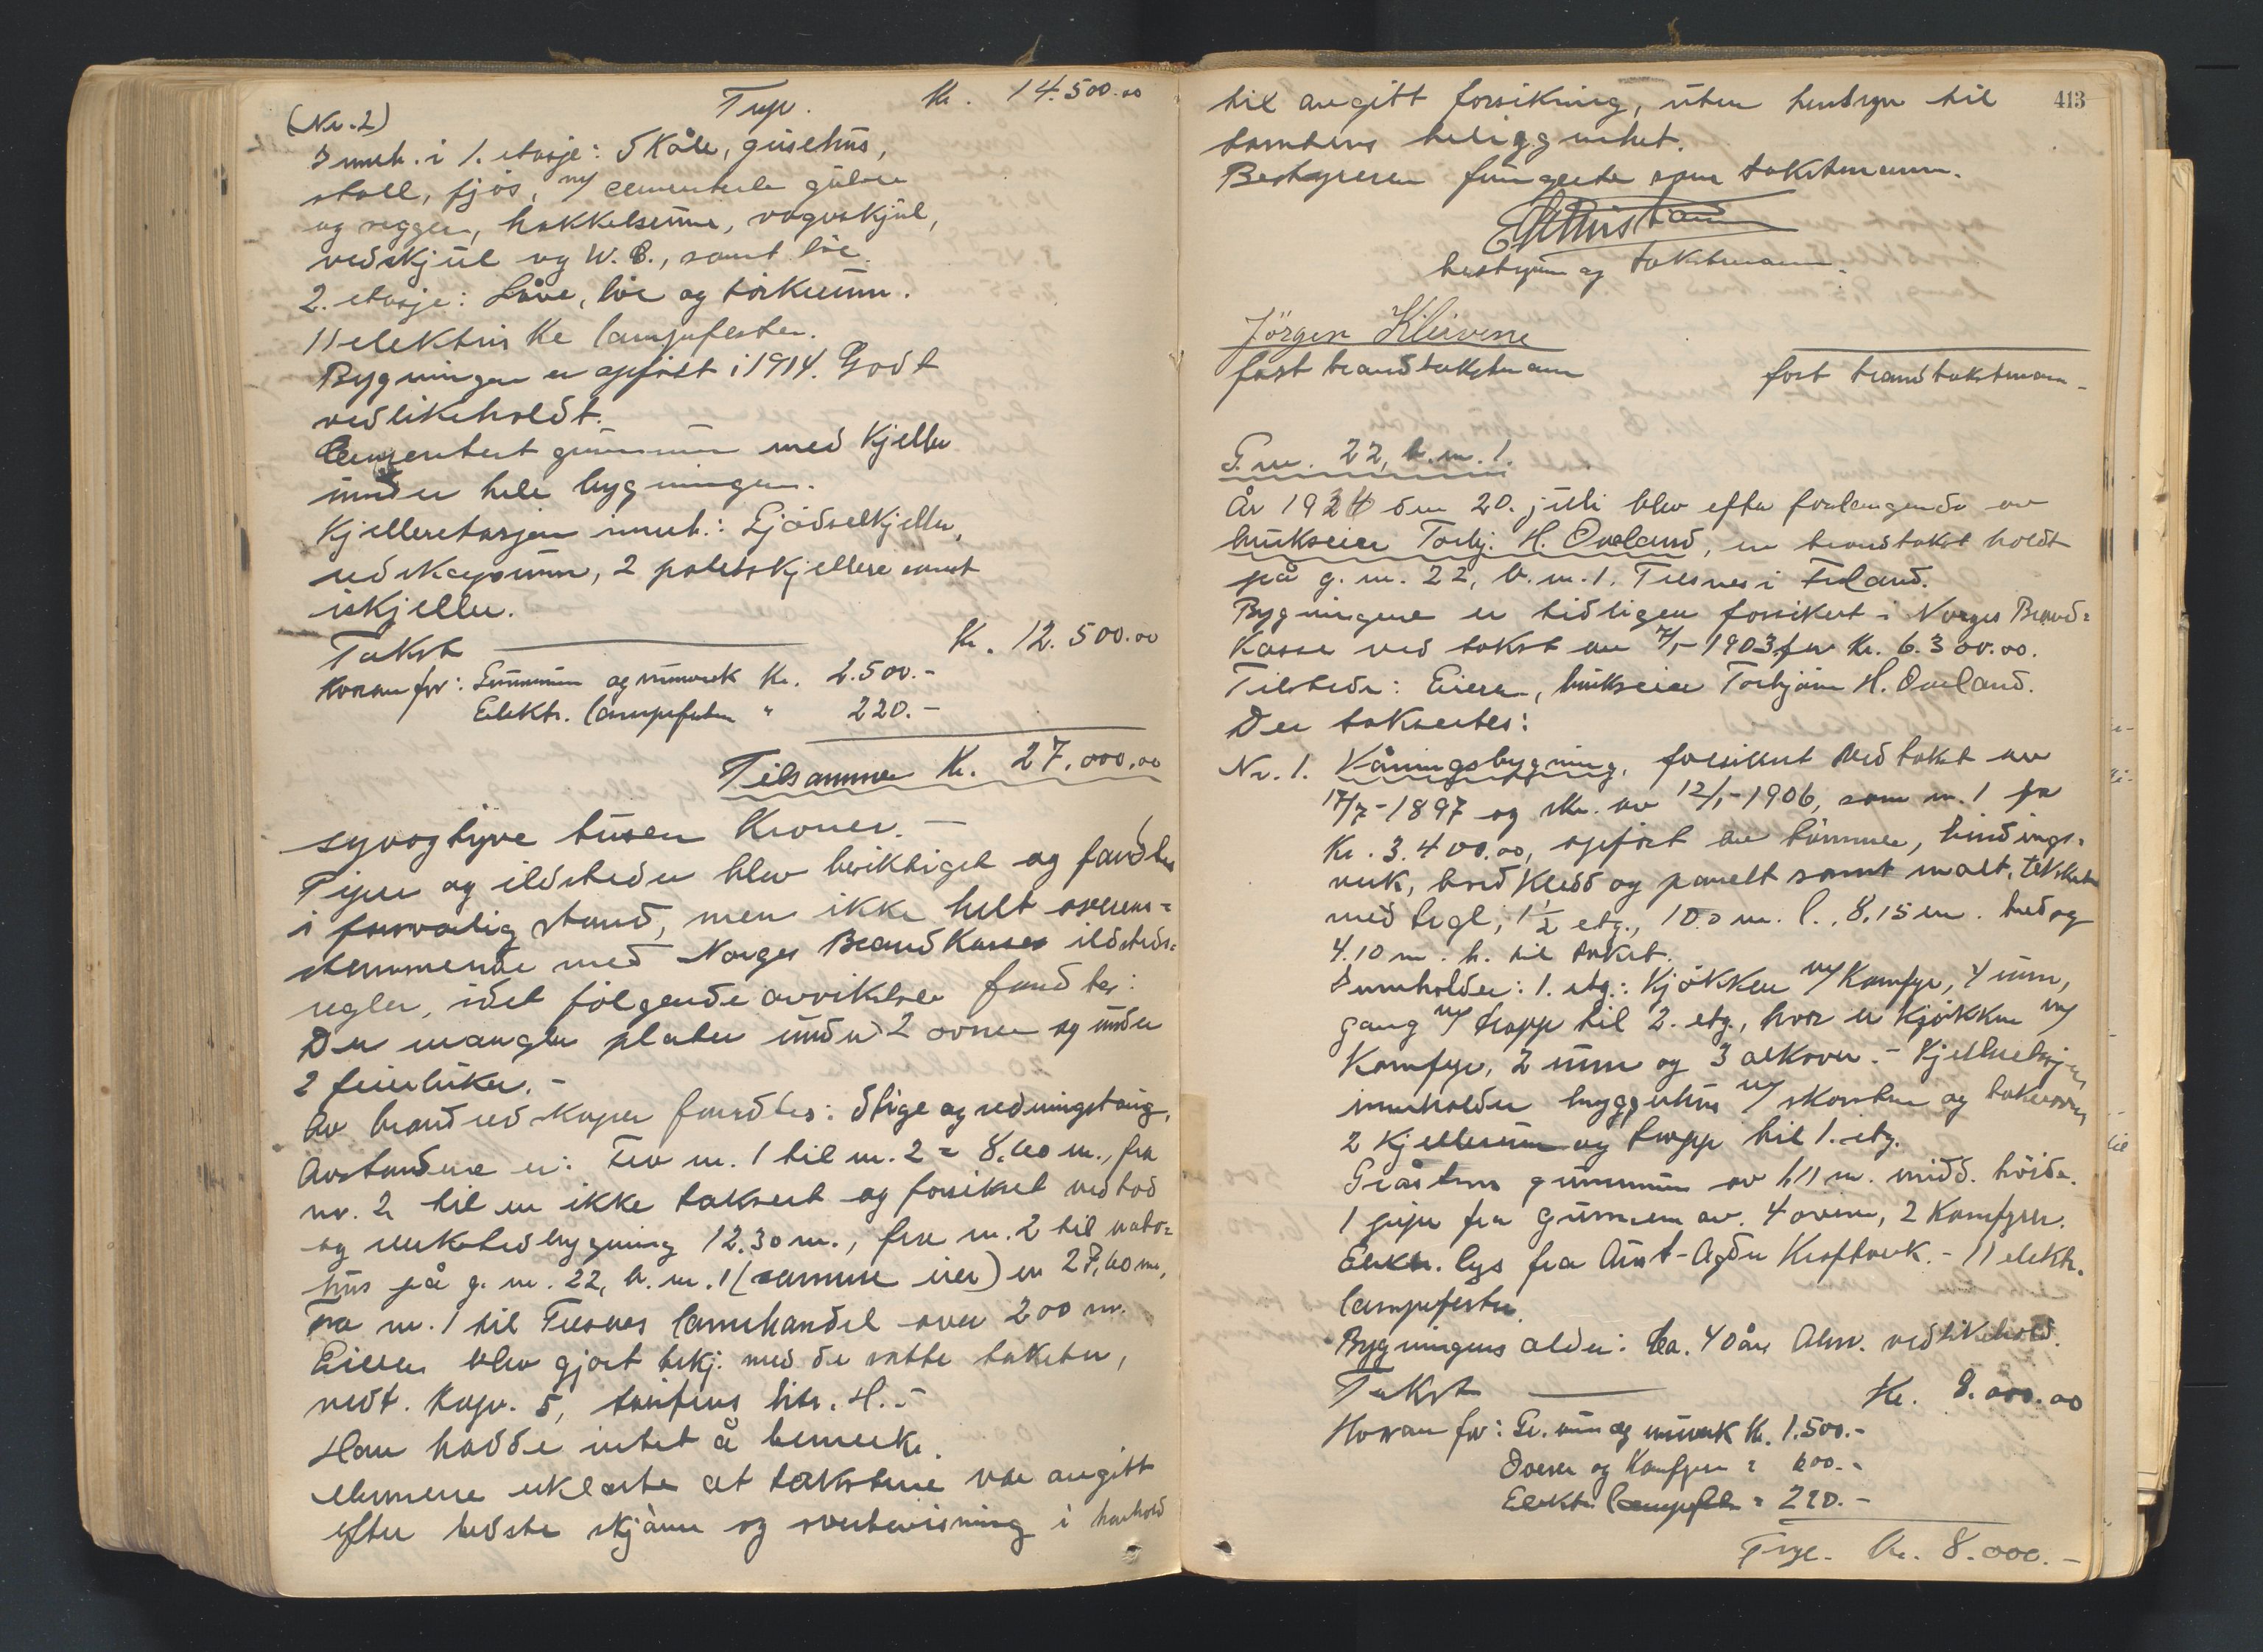 Trsp. Kr. 14.500.00
(Nr. 2)
Inneh. i 1. etasje: Skåle, grisehus,
stall, fjøs, m/ cementerte gulver
og vegger, hakkelserum, vognskjul,
vedskjul og W.C., samt løe.
2. etasje: Låve, løe og tørkerum.
11 elektriske lampefester.
Bygningen er opført i 1914. Godt
vedlikeholdt.
Cementert grunmur med kjeller
under hele bygningen.
Kjelleretasjen inneh.: Gjødselkjeller,
redskapsrum, 2 potetskjellere samt
iskjeller.
Takst Kr. 12.500.00
Hvorav for: Grunmur og murverk Kr. 2.500.-
Elektr. lampefester " 220.-
Tilsammen Kr. 27.000.00
syvogtyve tusen Kroner.-
Piper og ildsteder blev besiktiget og fandtes
i forsvarlig stand, men ikke helt overens=
stemmende med Norges Brandkasses ildsteds=
regler, idet følgende avvikelser fandtes:
Der mangler plater under 2 ovner og under
2 feierluker.-
Av brandredskaper fandtes: Stige og redningstaug.
Avstandene er: Fra nr. 1 til nr. 2 = 8.60 m., fra
nr. 2 til en ikke taksert og forsikret vedbod
og verkstedbygning 12.30 m., fra nr. 2 til nabo=
hus på g. nr. 22, b. nr. 1 (samme eier) er 27,60 m,
Fra nr. 1 til Tresnes landhandel over 200 m.
Eieren blev gjort bekj. med de satte takster,
vedt. kap. 5, tarifens litr. H.-
Han hadde intet å bemerke.
Mennene erklærte at takstene var avgitt
efter bedste skjønn og overbevisning i henhold
413
til avgitt forsikring, uten hensyn til
tomtens beliggenhet.
Bestyreren fungerte som takstmann.
bestyrer og takstmann.
Jörgen Kleivene
fast brandtakstmann fast brandtakstmann-
G. nr. 22, b. nr. 1.
År 1934 den 20. juli blev efter forlangende av
brukseier Torbj. H. Oveland, en brandtakst holdt
på g. nr. 22, b. nr. 1. Tresnes i Froland.
Bygningene er tidligere forsikret i Norges Brand=
kasse ved takst av 7/1-1903 for kr. 6.300.00.
Tilstede: Eieren, brukseier Torbjørn H. Oveland.
Der taksertes:
Nr. 1. Våningsbygning, forsikret ved takst av
17/7-1897 og skr. av 12/1-1906, som nr. 1 for
Kr. 3.400.00, opført av tømmer, bindings=
verk, bordkledd og panelt samt malt, tekket
med tegl, 1½ etg., 10.0 m. l., 8.15 m. bred og
4.10 m. h. til taket.
Inneholder: 1. etg.: Kjøkken m/ Komfyr, 4 rum,
gang m/ trapp til 2. etg., hvor er kjøkken m/
Komfyr, 2 rum og 3 alkover.- Kjelleretasjen
inneholder bryggerhus m/ skorsten og bakerovn,
2 kjellerrum og trapp til 1. etg.
Gråstens grunmur av 1,11 m. midd. høide.
1 pipe fra grunnen av. 4 ovner, 2 Komfyrer.
Elektr. lys fra Aust-Agder Kraftverk.- 11 elektr.
lampefester.
Bygningens alder: ca. 40 år. Alm. vedlikehold.
Takst Kr. 8.000.00
Hvorav for: Gr. mur og murverk Kr. 1.500.-
Ovner og Komfyrer " 600.-
Elektr. lampefester " 220.-
Trsp. Kr. 8.000.-